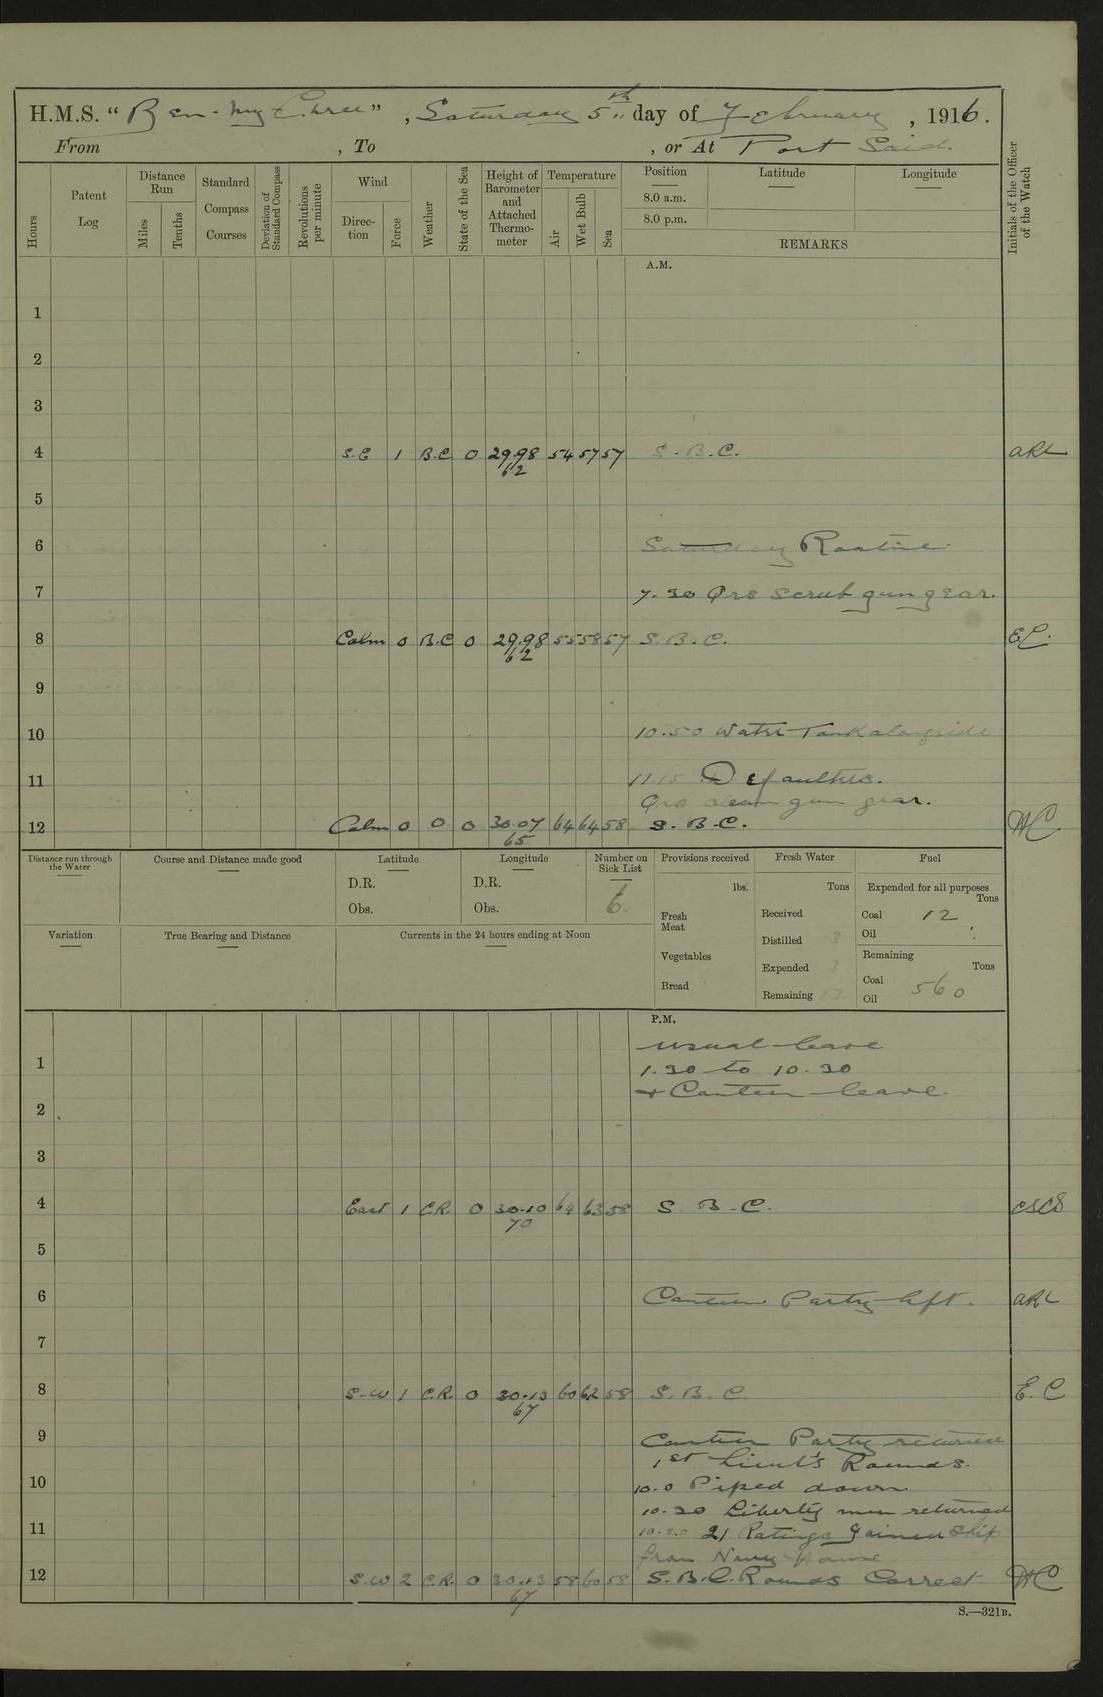 H.M.S. “Ben-my-Chree”, Saturday 5th day of February, 1916.
From , To , or At Port Said.
Hours
Patent Log
Distance Run
Miles
Tenths
Standard Compass Courses
Deviation of Standard Compass
Revolutions per minute
Wind
Direction
Force
Weather
State of the Sea
Height of Barometer and Attached Thermometer
Temperature
Air
Wet Bulb
Sea
Position
8.0 a.m.
8.0 p.m.
Latitude
Longitude
REMARKS
Initials of the Officer of the Watch
A.M.
1
2
3
4 S.E 1 B.C 0 29.98 54 57 57 S.B.C. ARL
62
5
6 Saturday Routine
7 7.30 Qrs scrub gun gear.
8 Calm 0 B.C 0 29.98 55 58 57 S.B.C. EC.
62
9
10 10.50 Water Tank alongside
11 11.15 Defaulters.
Qrs clean gun gear.
12 Calm 0 0 0 30.07 64 64 58 S.B.C. WC
65
Distance run through the Water
Course and Distance made good
Latitude
D.R.
Obs.
Longitude
D.R.
Obs.
Number on Sick List
6
Provisions received
lbs.
Fresh Meat
Vegetables
Bread
Fresh Water
Tons
Received
Distilled 3
Expended 3
Remaining
Fuel
Expended for all purposes
Tons
Coal 12
Oil
Remaining
Tons
Coal 560
Oil
Variation
True Bearing and Distance
Currents in the 24 hours ending at Noon
P.M.
usual leave
1 1.30 to 10.30
+ Canteen leave.
2
3
4 East 1 C.R. 0 30.10 64 63 58 S.B.C. CSCS
70
5
6 Canteen Party left. ARL
7
8 S-W 1 C.R. 0 30.13 60 62 58 S.B.C E.C
67
9 Canteen Party returned
1st Lieut's Rounds.
10 10.0 Piped down
10.30 Liberty men returned
11 21 Ratings Joined Ship
from Navy House
12 S.W 2 C.R. 0 30.13 58 60 58 S.B.C. Rounds Correct WC
67
S.—321B.